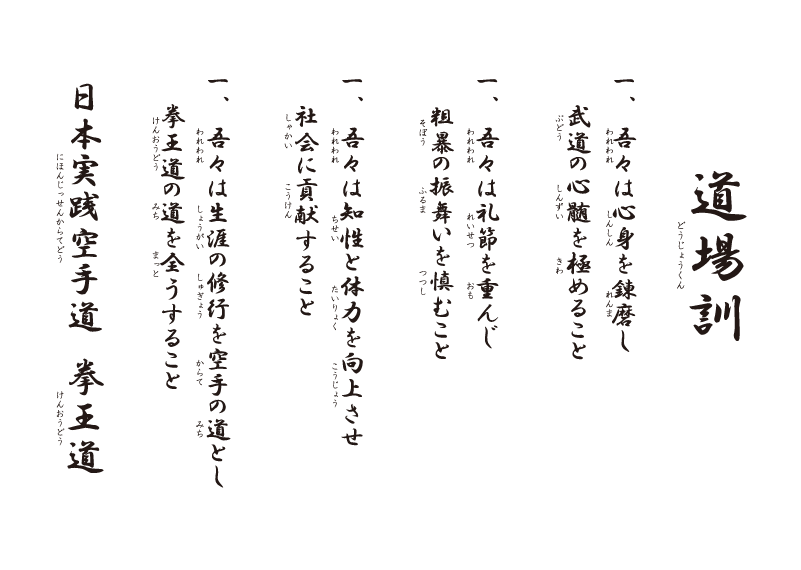 道場訓
どうじょうくん
一、吾々は心身を錬磨し
われわれ しんしん れんま
武道の心髄を極めること
ぶどう しんずい きわ
一、吾々は礼節を重んじ
われわれ れいせつ おも
粗暴の振舞いを慎むこと
そぼう ふるま つつし
一、吾々は知性と体力を向上させ
われわれ ちせい たいりょく こうじょう
社会に貢献すること
しゃかい こうけん
一、吾々は生涯の修行を空手の道とし
われわれ しょうがい しゅぎょう からて みち
拳王道の道を全うすること
けんおうどう みち まっと
日本実践空手道 拳王道
にほんじっせんからてどう けんおうどう